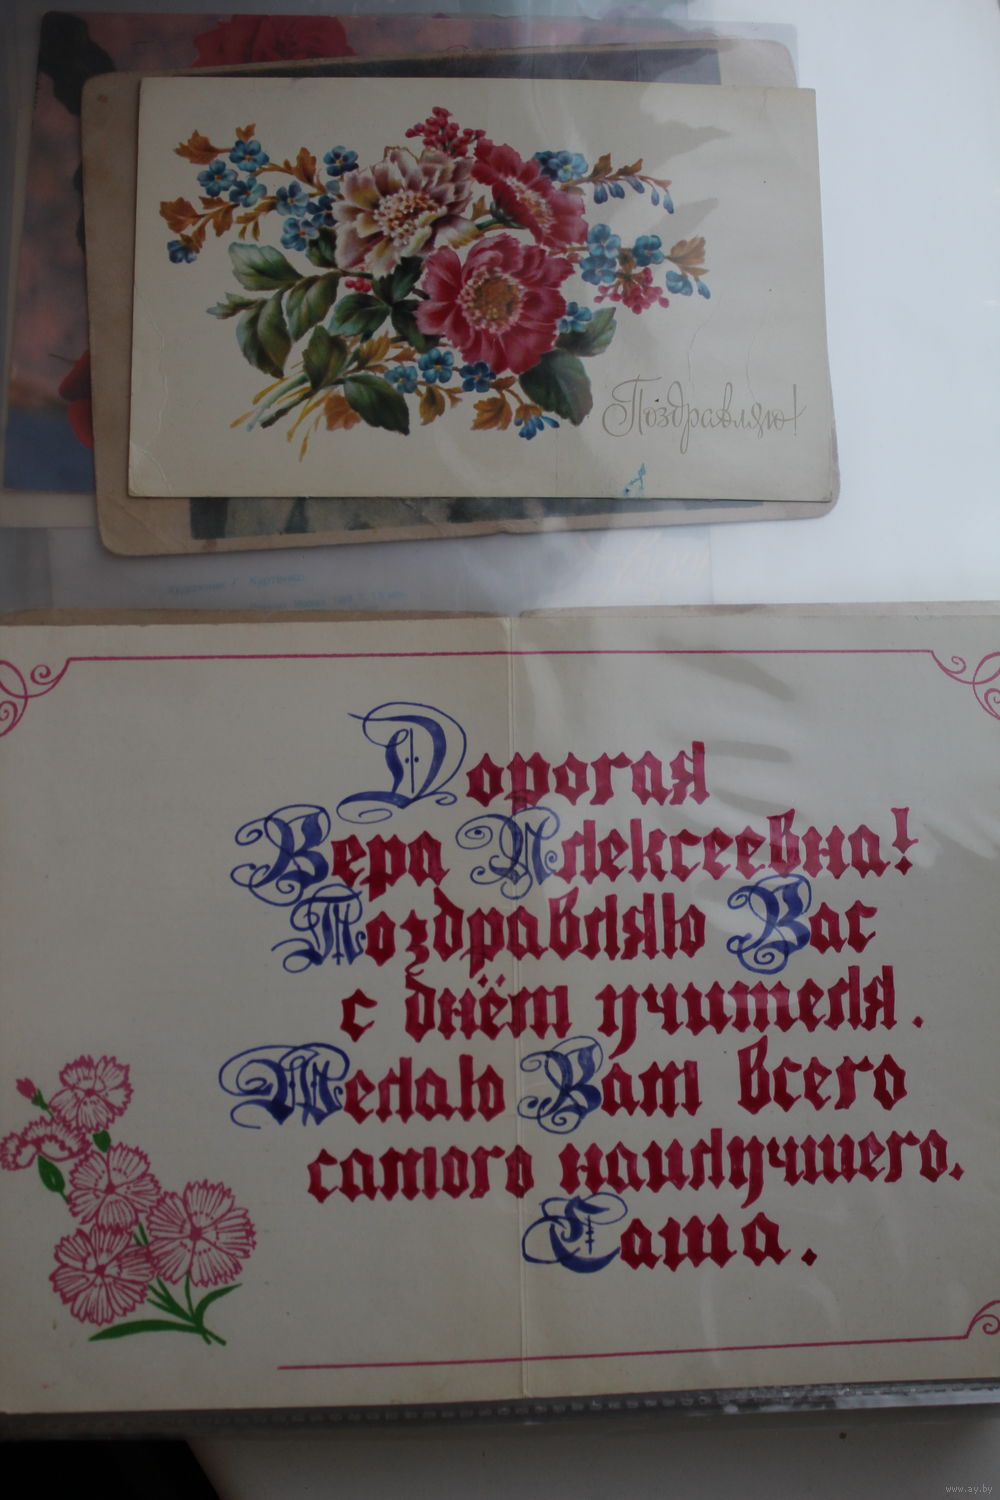 Поздравляю!
Художник Г. Куртенко
Дорогая
Вера Алексеевна!
Поздравляю Вас
с днём учителя.
Желаю Вам всего
самого наилучшего.
Саша.
www.ay.by